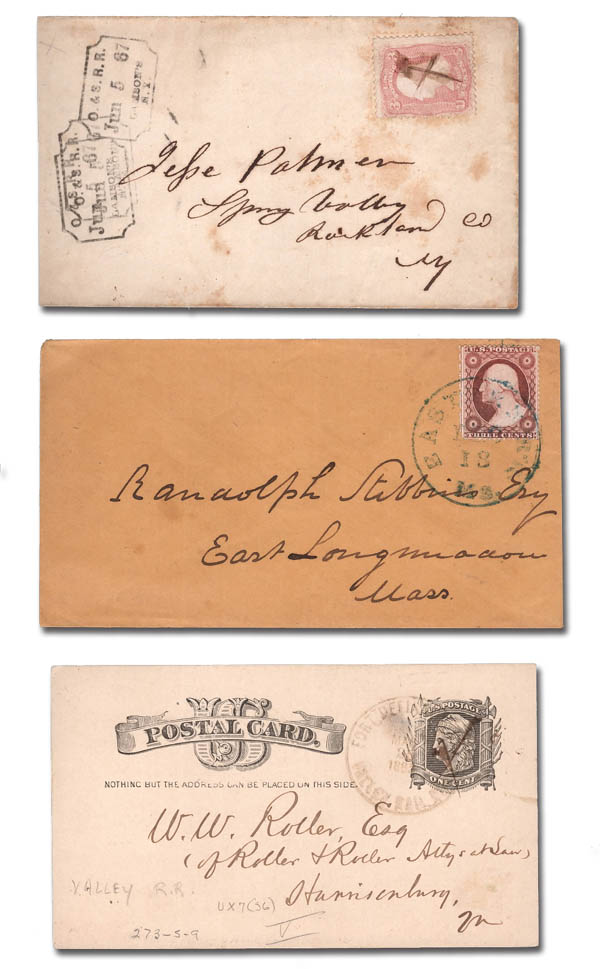 O. & S. R. R.
Jun 5 67
LAMSON'S
N.Y.
O. & S. R. R.
Jun 5 67
LAMSON'S
3 U.S. 3
Jesse Palmer
Spring Valley
Rockland Co
Ny
U.S. POSTAGE
THREE CENTS
EAST
18
Me.
Randolph Stebbins Esq
East Longmeadow
Mass.
US
POSTAL CARD.
NOTHING BUT THE ADDRESS CAN BE PLACED ON THIS SIDE.
FORT DEFI
VALLEY RAIL
U.S. POSTAGE
ONE CENT
W. W. Roller, Esq
(of Roller & Roller Attys at Law)
Harrisonburg,
Va
VALLEY R.R.
UX7(S6)
V
273-S-9